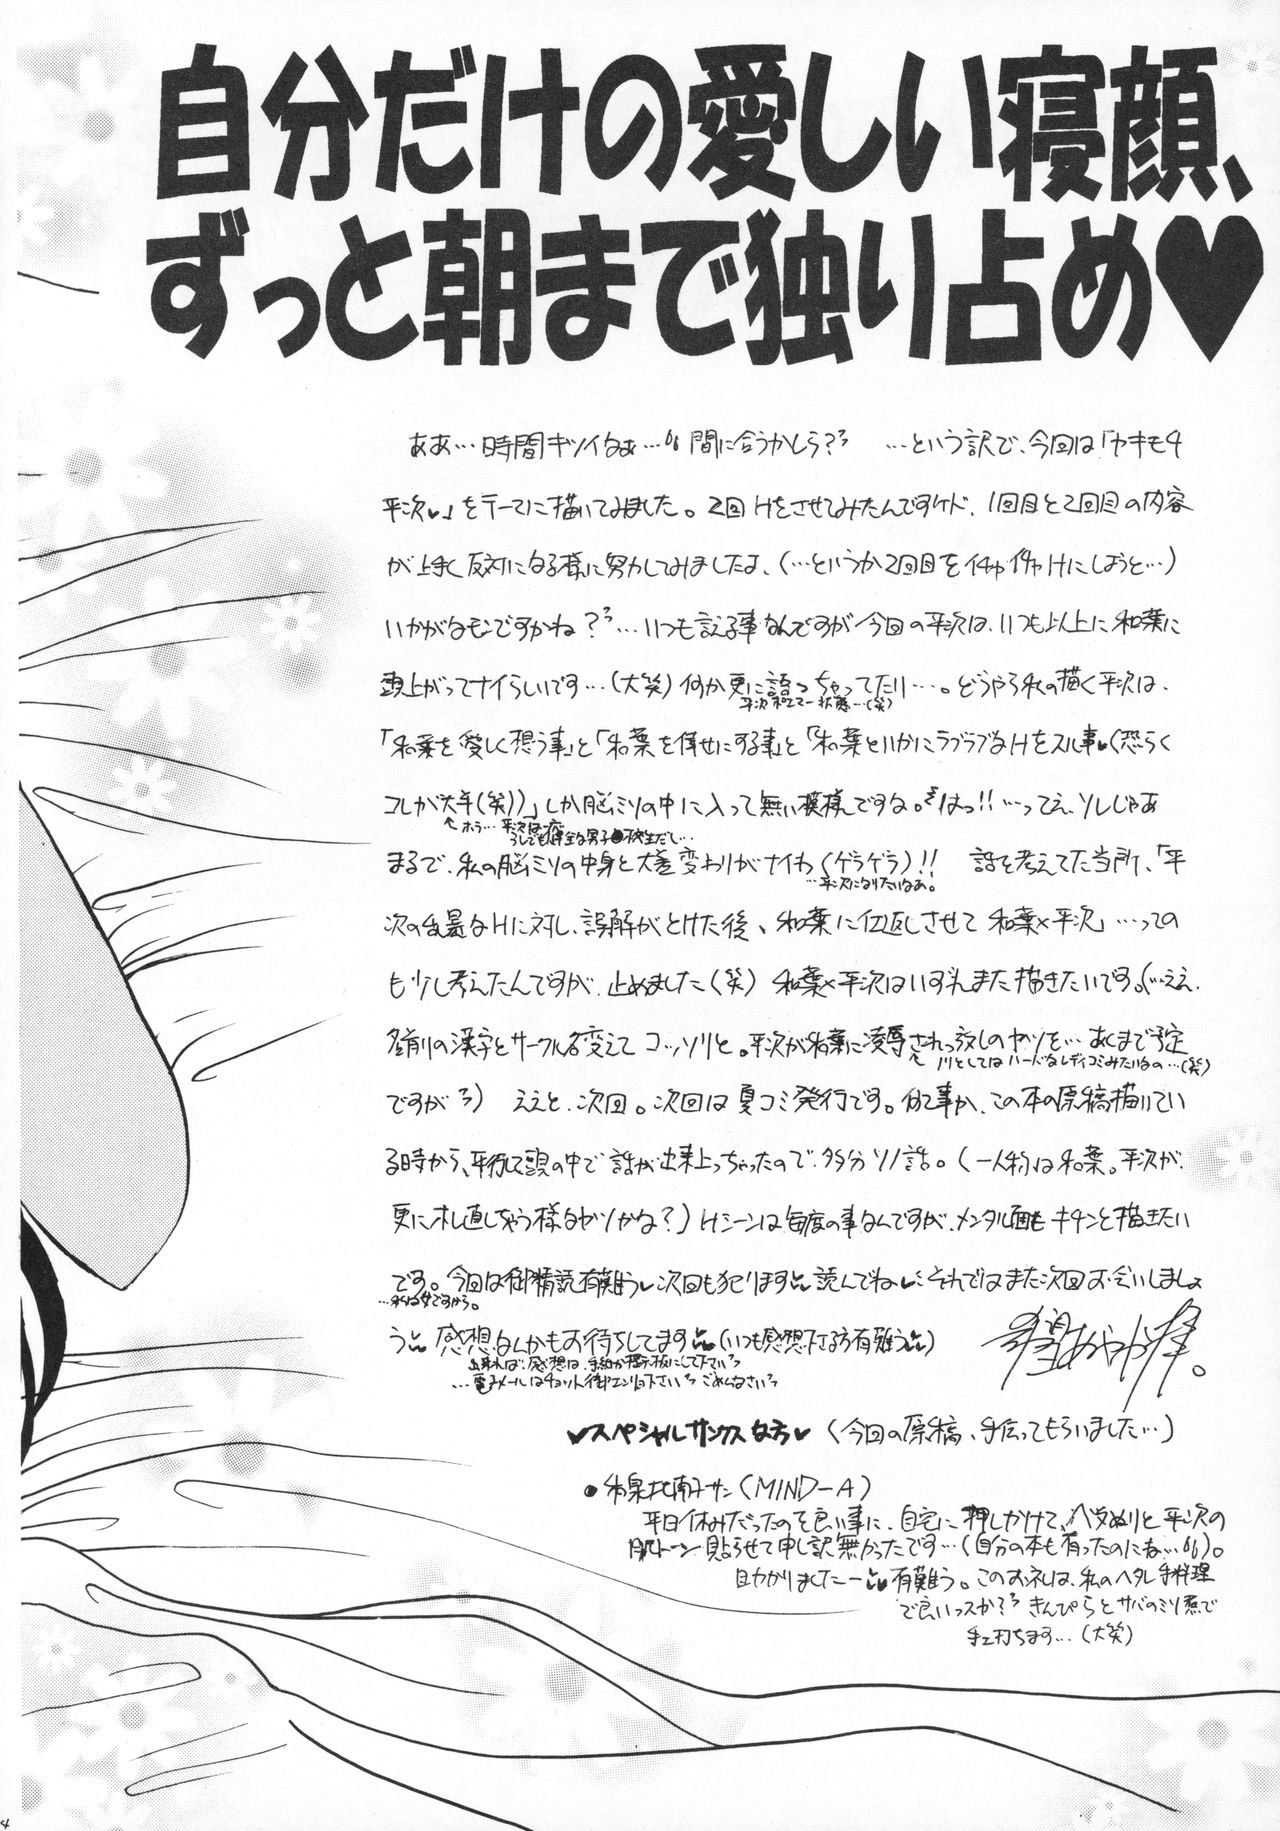 自分だけの愛しい寝顔、
ずっと朝まで独り占め♥
ああ…時間キツイなぁ… 間に合うかしら? …という訳で、今回は「ヤキモチ
平次♥」をテーマに描いてみました。2回Hをさせてみたんですケド、1回目と2回目の内容
が上手く反対になる様に努力してみましたよ、(…というか2回目をイチャイチャHにしようと…)
いかがなモンですかね?…いつも言える事なんですが今回の平次は、いつも以上に和葉に
頭上がってナイらしいです…(大笑)何か更に語っちゃってたり…。どうやら私の描く平次は、
平次ポエマー状態…(笑)
「和葉を愛しく想う事」と「和葉を倖せにする事」と「和葉といかにラブラブなHをスル事♥(恐らく
コレが大半(笑))」しか脳ミソの中に入って無い模様ですな。はっ!!…ってえ、ソレじゃあ
ホラ…平次は一応
うしても健全な男子 校生だし…
まるで、私の脳ミソの中身と大差変わりがナイわ(ゲラゲラ)!! 話を考えてた当所、「平
…平次になりたいなあ。
次の乱暴なHに対し、誤解がとけた後、和葉に仕返しさせて和葉×平次」…っての
も少し考えたんですが、止めました(笑) 和葉×平次はいずれまた描きたいです。(…ええ、
名前の漢字とサークル名変えてコッソリと。平次が和葉に凌辱されっ放しのヤツを…あくまで予定
ノリとしてはハードなレディコミみたいなの…(笑)
ですが) ええと、次回。次回は夏コミ発行です。何て事か、この本の原稿描いてい
る時から、平行して頭の中で話が出来上っちゃったので、多分ソノ話。(一人称は和葉。平次が、
更にオし直しちゃう様なヤツかな?)Hシーンは毎度の事なんですが、メンタル面もキチンと描きたい
です。今回は御精読有難う♥次回も犯ります 読んでね♥それではまた次回お会いしましょ
…私は女ですから。
う 感想なんかもお待ちしてます(いつも感想下さる方有難う)
出来れば、感想は、手紙か掲示板にして下さい
…電子メールはチョット御エンリョ下さい ごめんなさい
希望あやか 。
♥スペシャルサンクスな方♥ (今回の原稿、手伝ってもらいました…)
●和泉比南子サン(MIND-A)
平日休みだったのを良い事に、自宅に押しかけて、ベタぬりと平次の
肌トーン貼らせて申し訳無かったです…(自分の本も有ったのにな…)。
助かりましたー 有難う。このお礼は、私のヘタレ手料理
で良いっスか? きんぴらとサバのミソ煮で
手エ打ちます…(大笑)
4